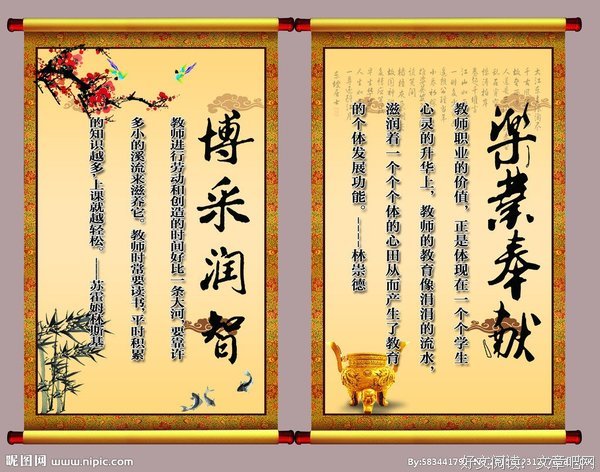 樂業奉献
教师职业的价值，正是体现在一个个学生
心灵的升华上，教师的教育像汩汩的流水，
滋润着一个个个体的心田从而产生了教育
的个体发展功能。----林崇德
博采润智
教师进行劳动和创造的时间好比一条大河，要靠许
多小的溪流来滋养它。教师时常要读书，平时积累
的知识越多，上课就越轻松。——苏霍姆林斯基
昵图网 www.nipic.com
好文阅读：文章吧网